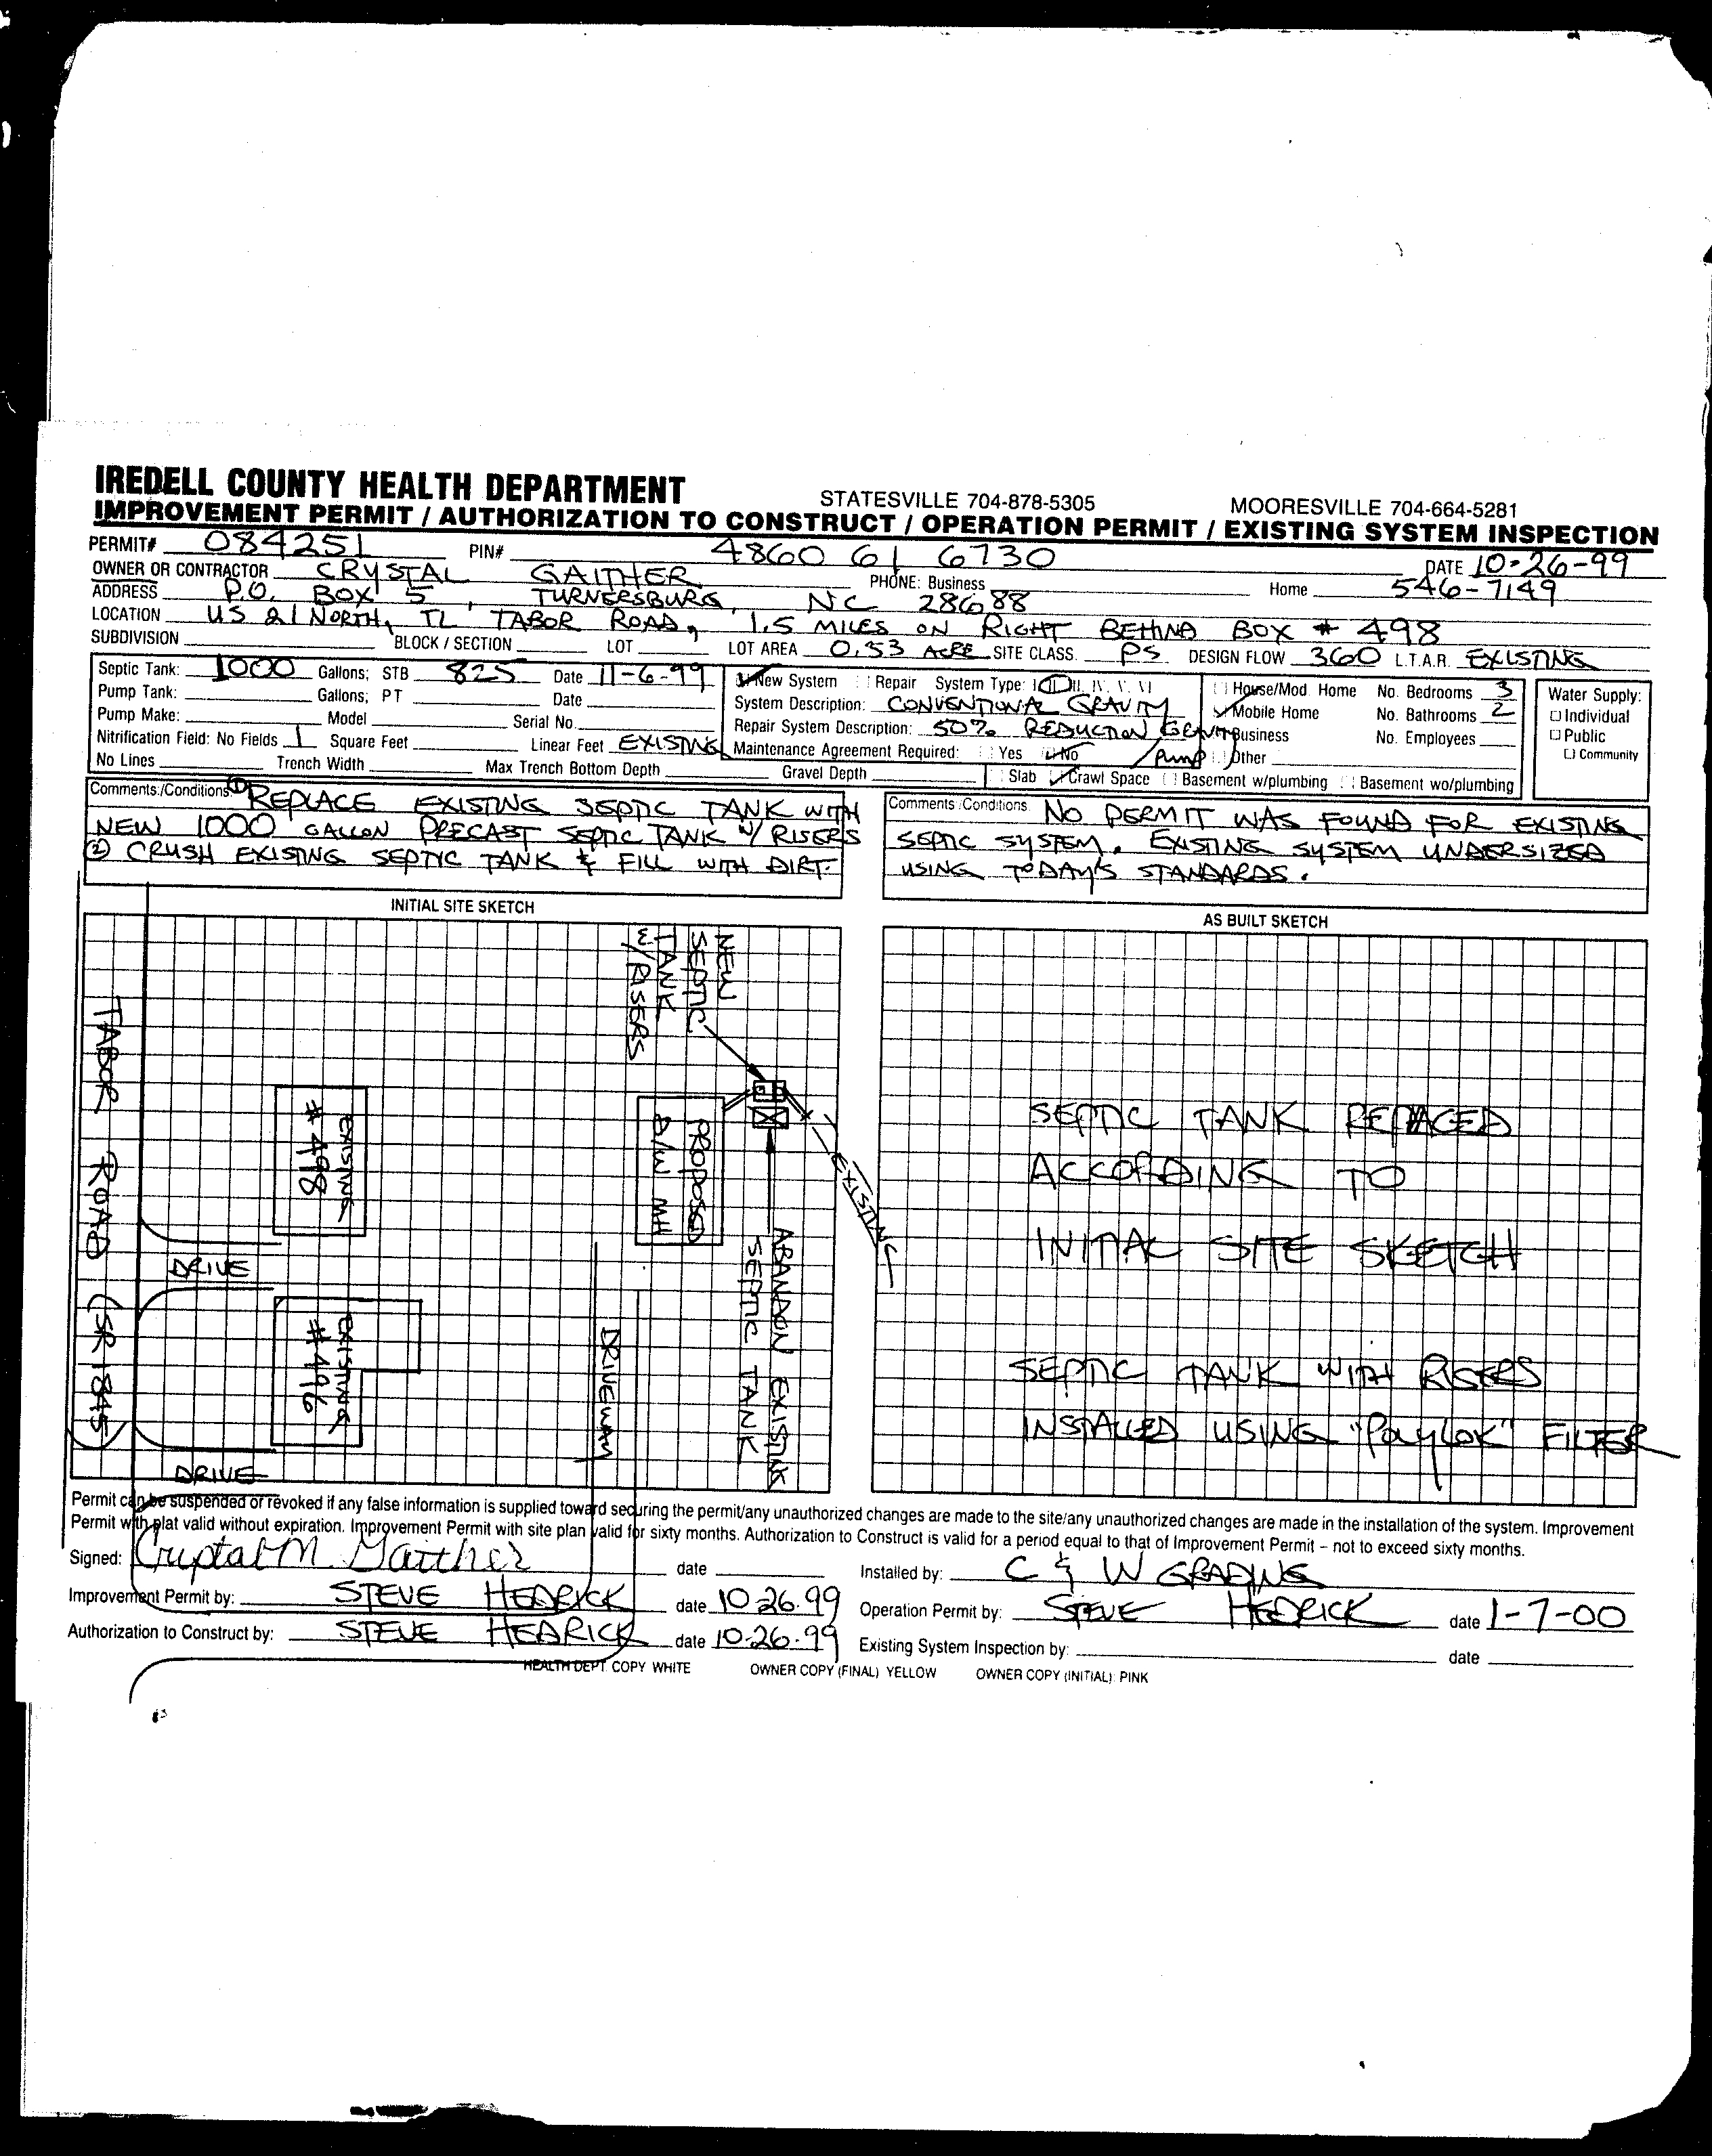 IREDELL COUNTY HEALTH DEPARTMENT STATESVILLE 704-878-5305 MOORESVILLE 704-664-5281
IMPROVEMENT PERMIT / AUTHORIZATION TO CONSTRUCT / OPERATION PERMIT / EXISTING SYSTEM INSPECTION
PERMIT# 084251 PIN# 4860 61 6730 DATE 10-26-99
OWNER OR CONTRACTOR CRYSTAL GAITHER PHONE: Business Home 546-7149
ADDRESS P.O. BOX 5, TURNERSBURG, NC 28688
LOCATION US 21 NORTH, TL TABOR ROAD, 1.5 MILES ON RIGHT BEHIND BOX # 498
SUBDIVISION BLOCK / SECTION LOT LOT AREA 0.53 ACRE SITE CLASS. PS DESIGN FLOW 360 L.T.A.R. EXISTING
Septic Tank: 1000 Gallons; STB 825 Date 11-6-99
Pump Tank: Gallons; PT Date
Pump Make: Model Serial No.
Nitrification Field: No Fields 1 Square Feet Linear Feet EXISTING
No Lines Trench Width Max Trench Bottom Depth Gravel Depth
New System Repair System Type: I II III, IV, V, VI
System Description: CONVENTIONAL GRAVITY
Repair System Description: 50% REDUCTION GRAVITY/PUMP
Maintenance Agreement Required: Yes No
House/Mod. Home No. Bedrooms 3
Mobile Home No. Bathrooms 2
Business No. Employees
Other
Slab Crawl Space Basement w/plumbing Basement wo/plumbing
Water Supply:
Individual
Public
Community
Comments/Conditions: ① REPLACE EXISTING SEPTIC TANK WITH
NEW 1000 GALLON PRECAST SEPTIC TANK W/ RISERS
② CRUSH EXISTING SEPTIC TANK & FILL WITH DIRT.
Comments/Conditions: NO PERMIT WAS FOUND FOR EXISTING
SEPTIC SYSTEM. EXISTING SYSTEM UNDERSIZED
USING TODAY'S STANDARDS.
INITIAL SITE SKETCH
NEW
SEPTIC
TANK
W/RISERS
TABOR ROAD (SR 1845)
EXISTING
# 498
PROPOSED
D/W MH
EXISTING
DRIVE
EXISTING
# 496
DRIVEWAY
ABANDON EXISTING
SEPTIC TANK
DRIVE
AS BUILT SKETCH
SEPTIC TANK REPLACED
ACCORDING TO
INITIAL SITE SKETCH
SEPTIC TANK WITH RISERS
INSTALLED USING "PolyLOK" FILTER
Permit can be suspended or revoked if any false information is supplied toward securing the permit/any unauthorized changes are made to the site/any unauthorized changes are made in the installation of the system. Improvement
Permit with plat valid without expiration. Improvement Permit with site plan valid for sixty months. Authorization to Construct is valid for a period equal to that of Improvement Permit – not to exceed sixty months.
Signed: Crystal M. Gaither date
Improvement Permit by: STEVE HEDRICK date 10-26-99
Authorization to Construct by: STEVE HEDRICK date 10-26-99
Installed by: C & W GRADING
Operation Permit by: STEVE HEDRICK date 1-7-00
Existing System Inspection by: date
HEALTH DEPT. COPY WHITE OWNER COPY (FINAL) YELLOW OWNER COPY (INITIAL): PINK